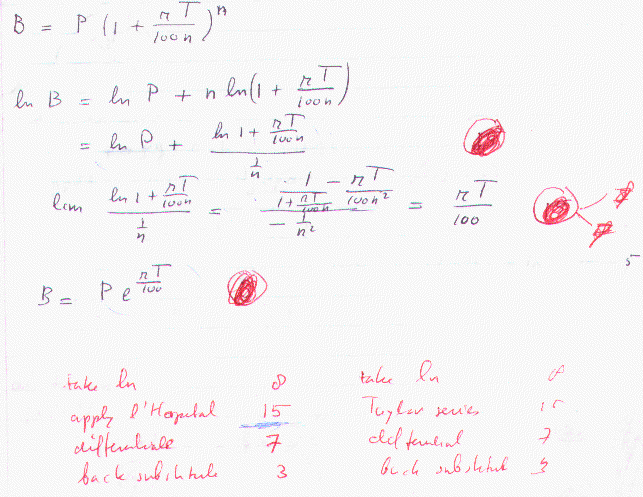 B = P (1 + rT/100n)^n
ln B = ln P + n ln(1 + rT/100n)
= ln P + (ln 1 + rT/100n)/(1/n)
lim (ln 1 + rT/100n)/(1/n) = (1/(1 + rT/100n) - rT/100n²)/(-1/n²) = rT/100
5
B = P e^(rT/100)
take ln 8
apply l'Hopital 15
differentiate 7
back substitute 3
take ln 8
Taylor series 15
differential 7
back substitut 3